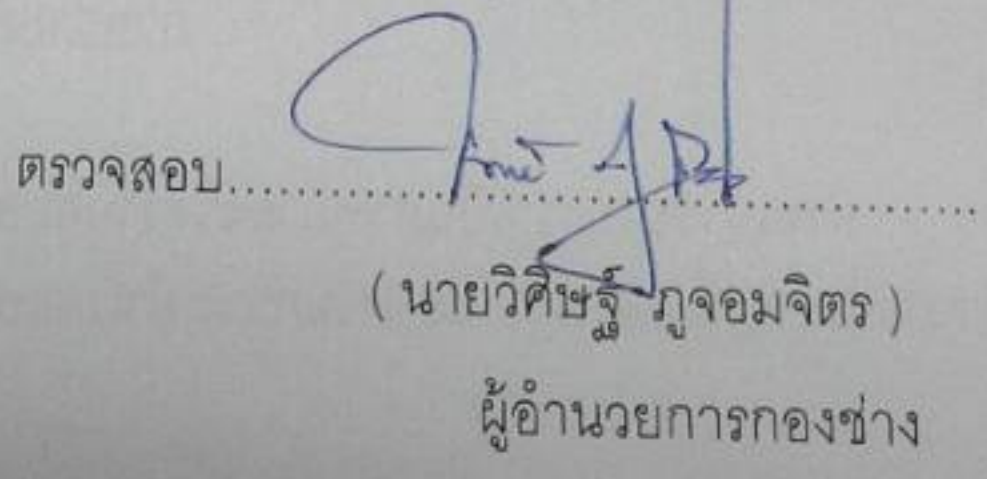 ตรวจสอบ..........................................................
( นายวิศิษฐ์ ภูจอมจิตร )
ผู้อำนวยการกองช่าง